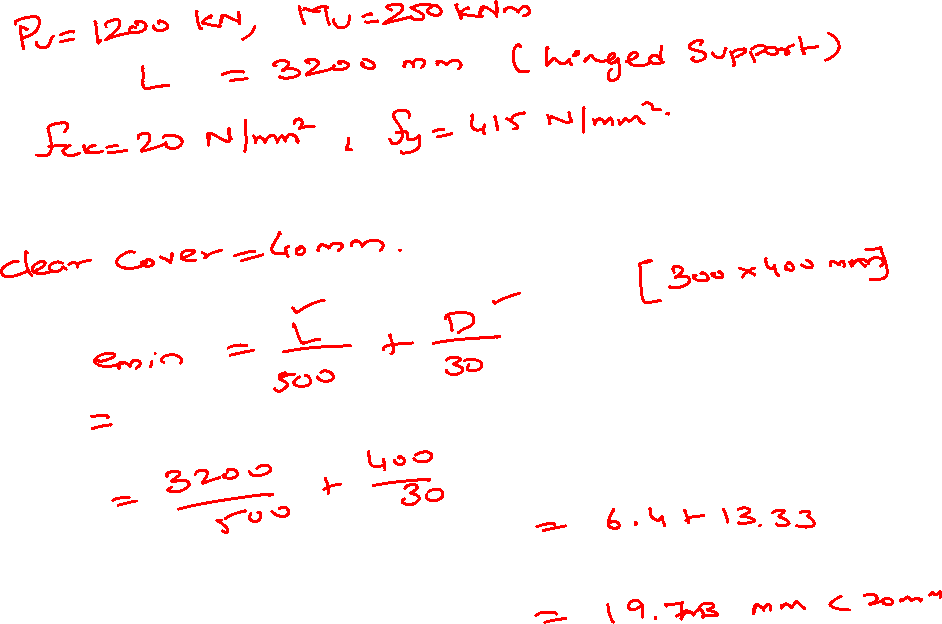 Pu = 1200 kN, Mu = 250 kNm
L = 3200 mm (hinged Support)
fck = 20 N/mm², fy = 415 N/mm².
clear cover = 40 mm.
[300 x 400 mm]
emin = L/500 + D/30
=
= 3200/500 + 400/30
= 6.4 + 13.33
= 19.73 mm < 20mm